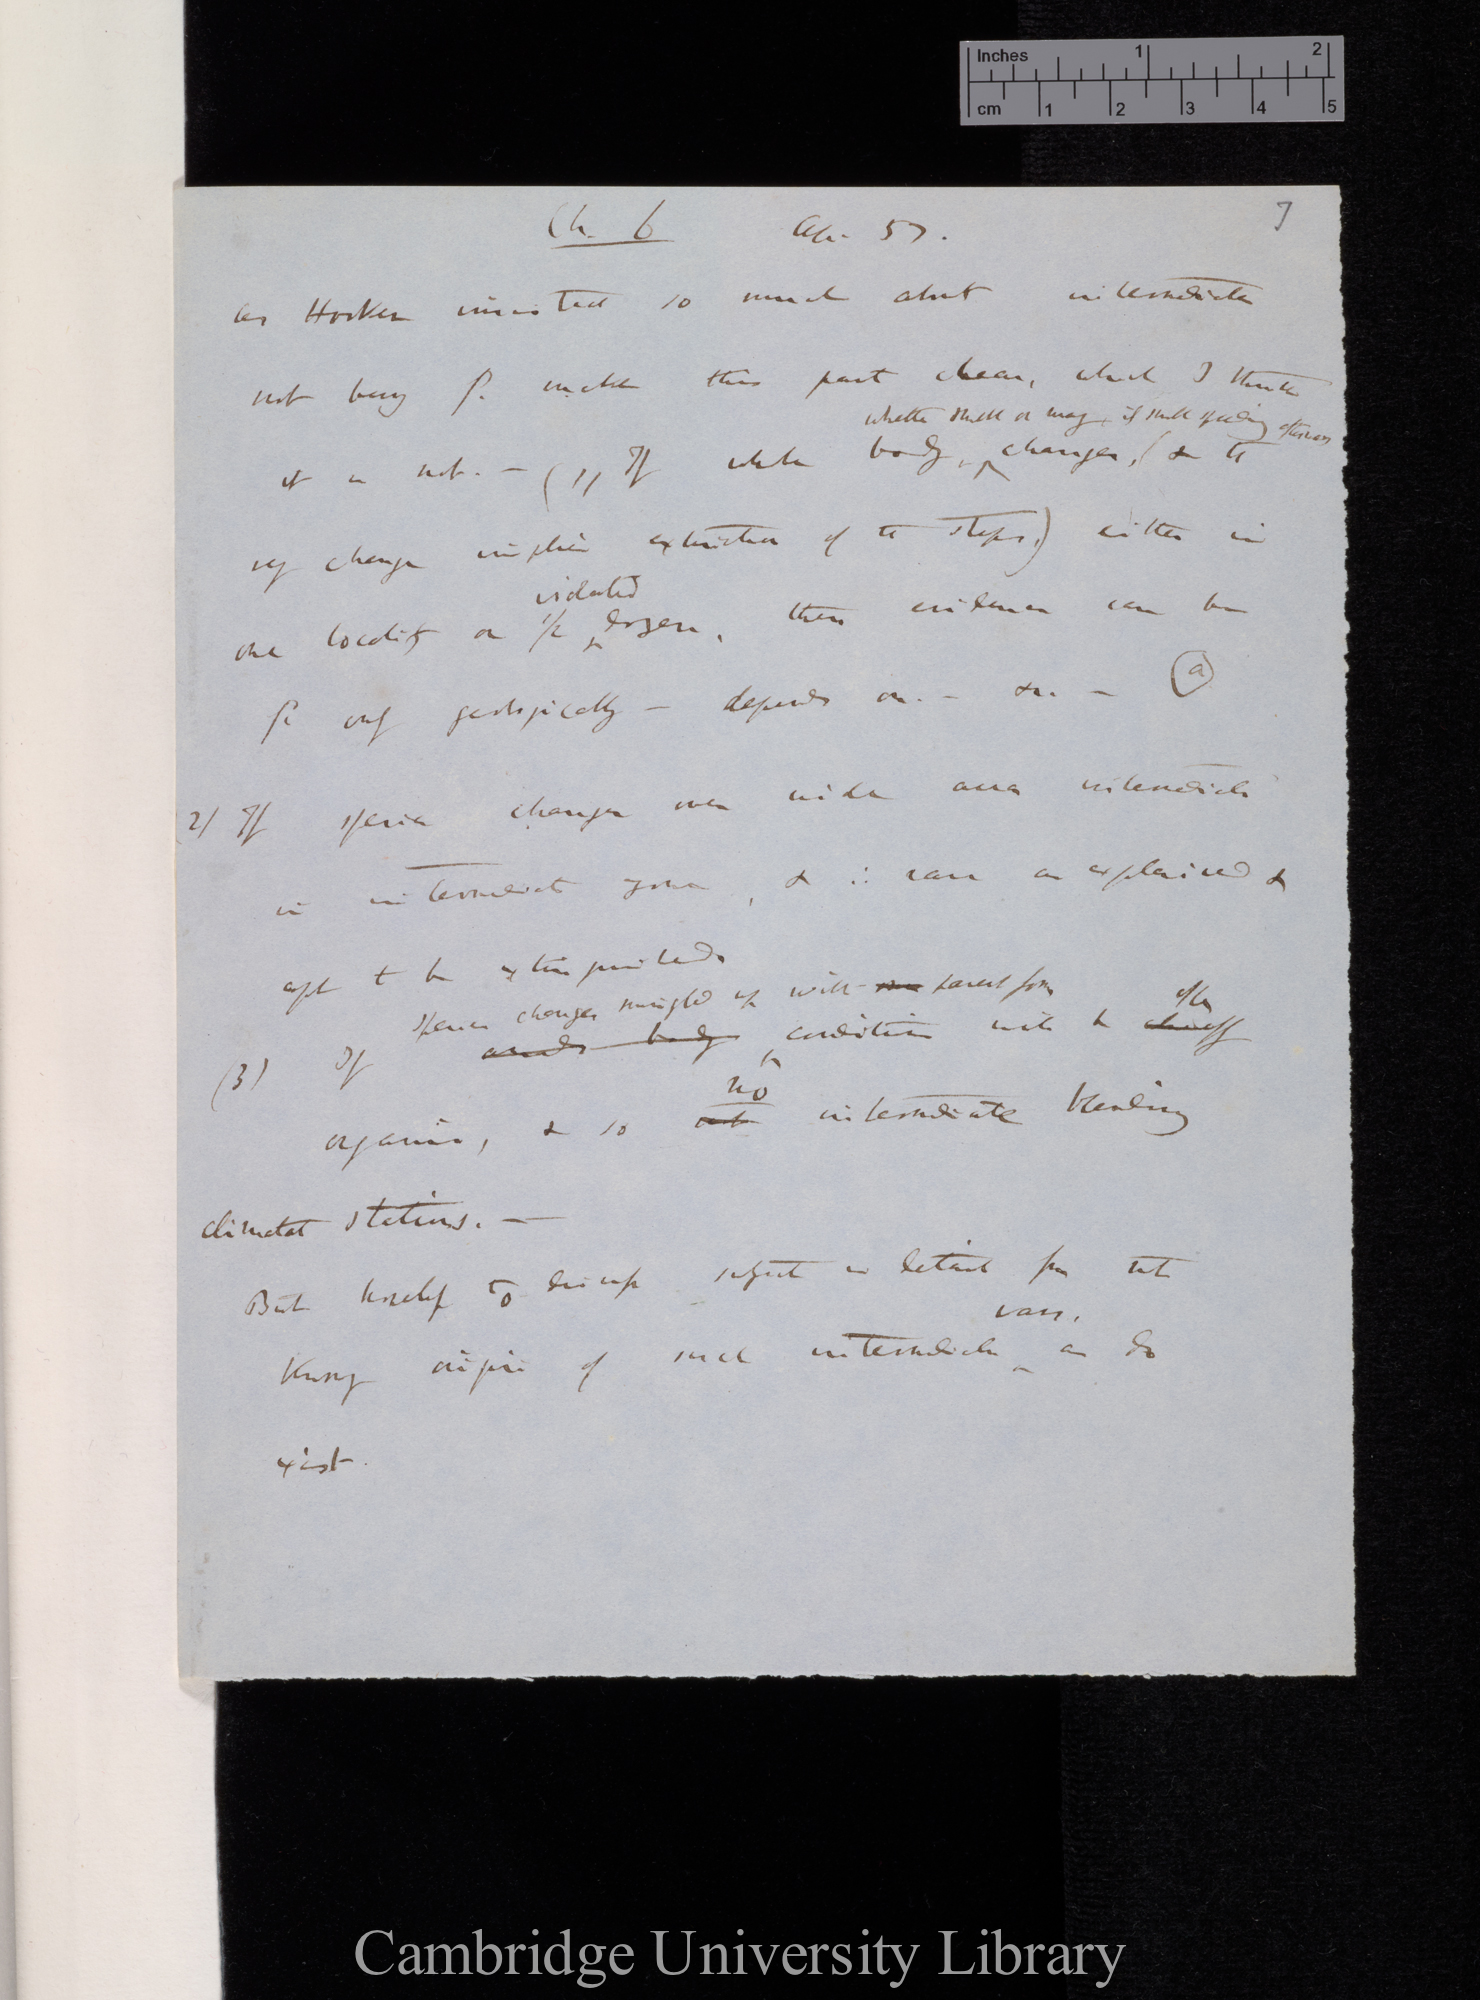 Inches 1 2
cm 1 2 3 4 5
7
Ch. 6 Ap. 57.
as Hooker insisted so much about intermediate
not being f. make this part clear, which I think
whether small or many, if small spreading afterwards
it is not. — (1) If whole body, changes, (& the
very change implies extinction of the steps,) either in
isolated
one locality or 1/2 dozen, then evidence can be
f. only geologically — depends on. — &c. — (a)
2) If species changes over wide area intermediate
in intermediate zone, & ∴ rare as explained &
apt to be extinguished
species changes mingled up with parent form
often
(3) If conditions will be chiefly
no
organic, & so not intermediate blending
climatal stations. —
But hopeless to discuss subject in detail for not
vars.
Knowg origin of such intermediate as do
exist.
Cambridge University Library